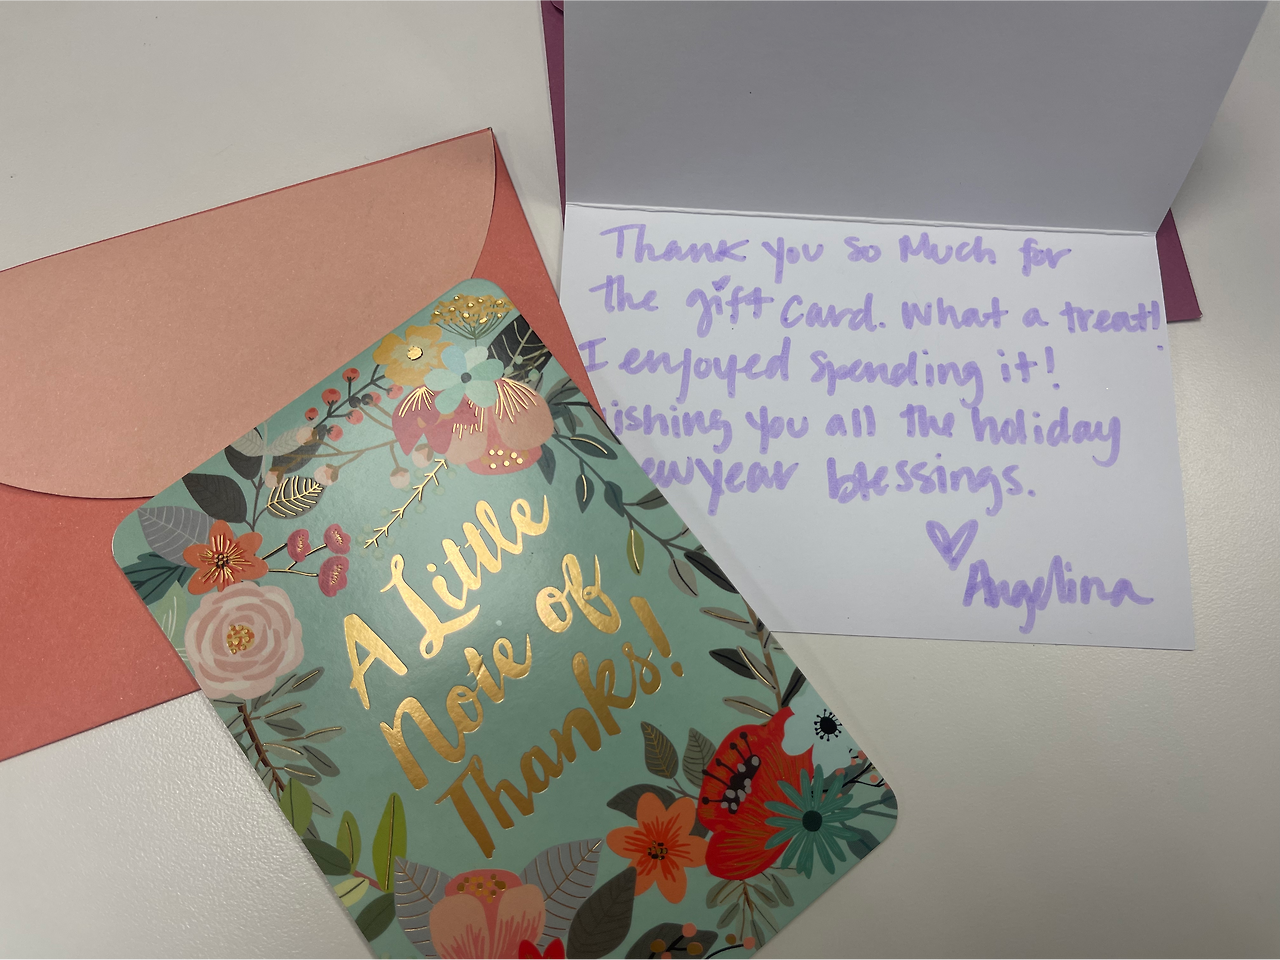 A Little
Note of
Thanks!
Thank you so Much for
the gift card. What a treat!
I enjoyed spending it!
ishing you all the holiday
ewyear blessings.
Angelina